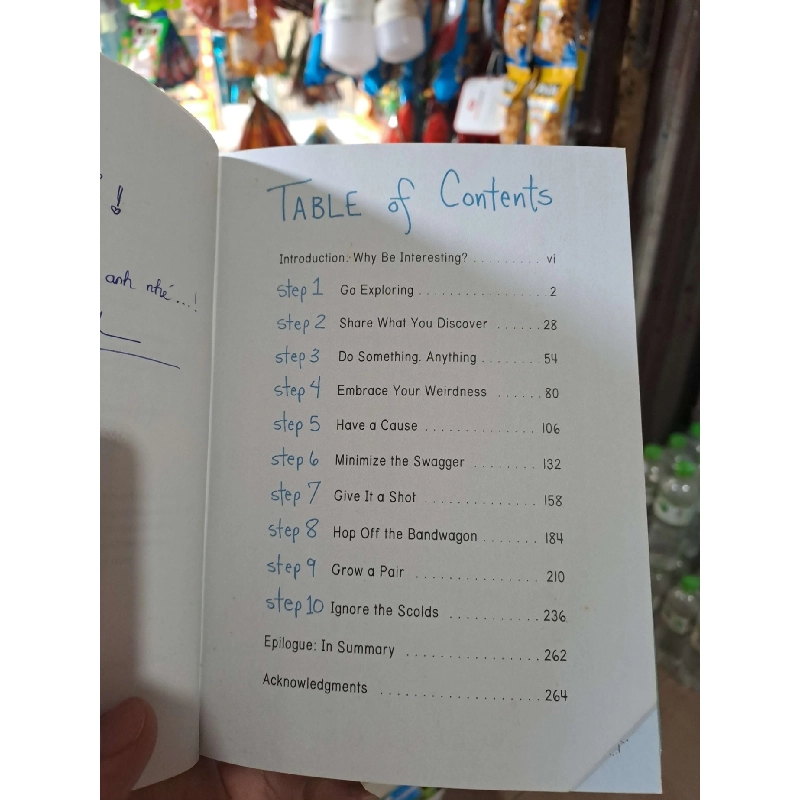 !
anh nhé...!
TABLE of Contents
Introduction: Why Be Interesting? ......... vi
step 1 Go Exploring .................. 2
step 2 Share What You Discover ...... 28
step 3 Do Something. Anything ....... 54
step 4 Embrace Your Weirdness ...... 80
step 5 Have a Cause .............. 106
step 6 Minimize the Swagger ........ 132
step 7 Give It a Shot .............. 158
step 8 Hop Off the Bandwagon ....... 184
step 9 Grow a Pair ................ 210
step 10 Ignore the Scolds ........... 236
Epilogue: In Summary ................ 262
Acknowledgments .................... 264